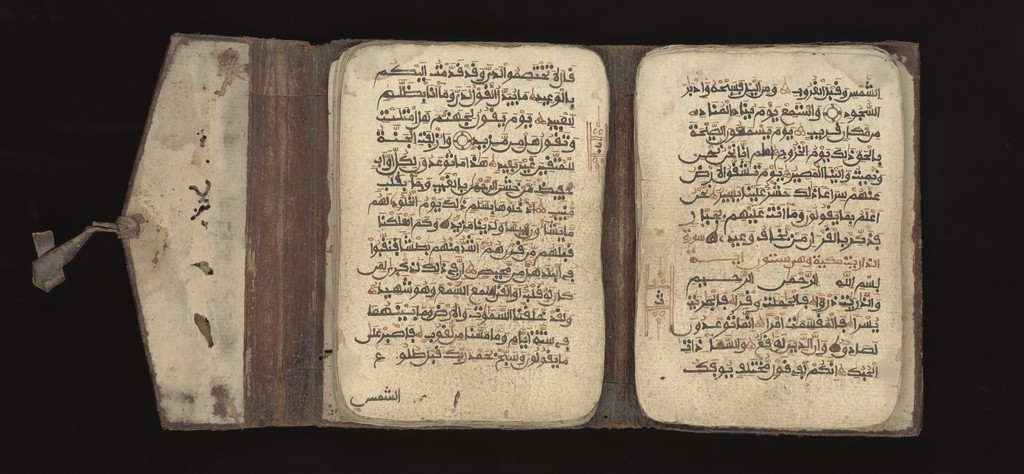 قال لا تختصموا لدي وقد قدمت إليكم
بالوعيد ما يبدل القول لدي وما أنا بظلم
للعبيد يوم يقول لجهنم هل امتلأت
وتقول هل من مزيد وأزلفت الجنة
للمتقين غير بعيد هذا ما توعدون لكل أواب
حفيظ من خشي الرحمن بالغيب وجاء بقلب
منيب ادخلوها بسلم ذلك يوم الخلود لهم
ما يشاءون فيها ولدينا مزيد وكم أهلكنا
قبلهم من قرن هم أشد منهم بطشا فنقبوا
في البلد هل من محيص إن في ذلك لذكرى لمن
كان له قلب أو ألقى السمع وهو شهيد
ولقد خلقنا السموت والأرض وما بينهما
في ستة أيام وما مسنا من لغوب فاصبر على
ما يقولون وسبح بحمد ربك قبل طلوع
الشمس
الشمس وقبل الغروب ومن اليل فسبحه وإدبر
السجود واستمع يوم يناد المناد
من مكان قريب يوم يسمعون الصيحة
بالحق ذلك يوم الخروج إنا نحن نحي
ونميت وإلينا المصير يوم تشقق الأرض
عنهم سراعا ذلك حشر علينا يسير نحن
أعلم بما يقولون وما أنت عليهم بجبار
فذكر بالقرآن من يخاف وعيد سورة
الذاريت مكية وهي ستون آية
بسم الله الرحمن الرحيم
والذريت ذروا فالحملت وقرا فالجريت
يسرا فالمقسمت أمرا إنما توعدون
لصادق وإن الدين لوقع والسماء ذات
الحبك إنكم لفي قول مختلف يوفك